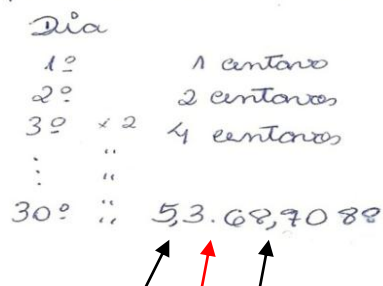 Dia
1º 1 centavo
2º 2 centavos
3º x 2 4 centavos
: "
: "
30º " 53.68,7088